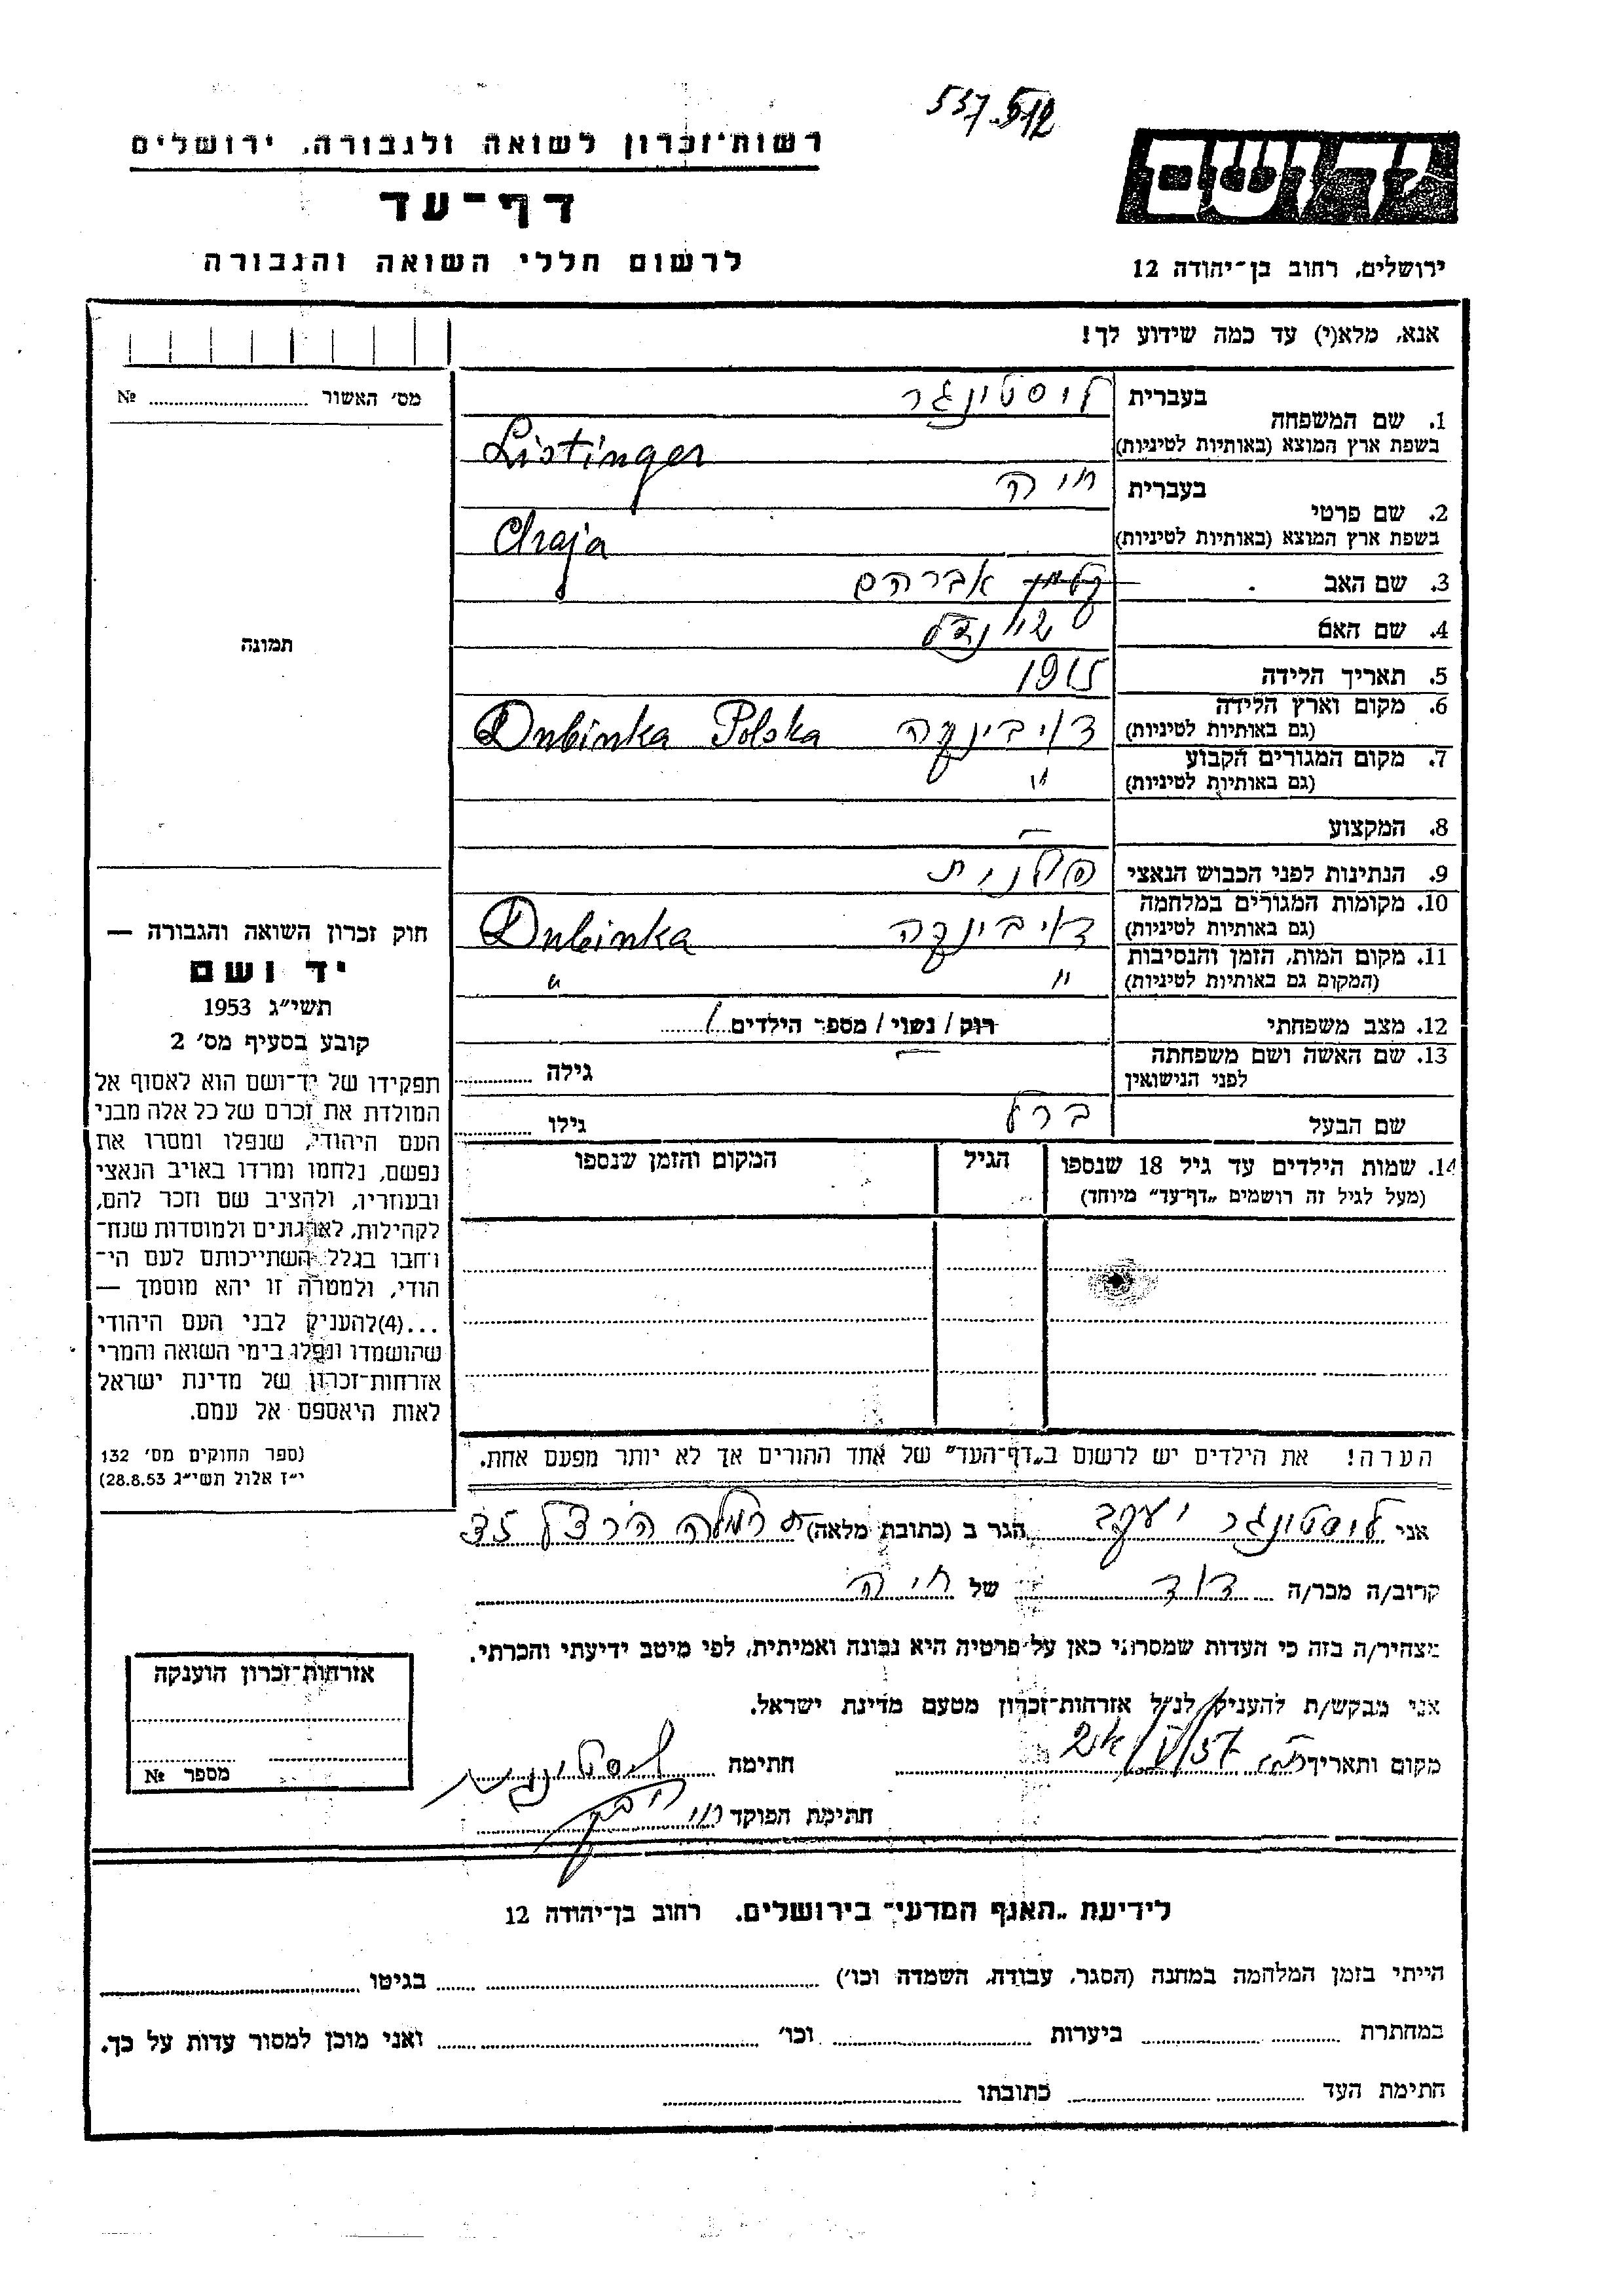 537.512
יד ושם
ירושלים, רחוב בן־יהודה 12
רשות־זכרון לשואה ולגבורה, ירושלים
דף־עד
לרשום חללי השואה והגבורה
אנא, מלא(י) עד כמה שידוע לך!
1. שם המשפחה
בעברית ליסטינגר
בשפת ארץ המוצא (באותיות לטיניות) Listinger
2. שם פרטי
בעברית חיה
בשפת ארץ המוצא (באותיות לטיניות) Chaja
3. שם האב אברהם
4. שם האם שיינדל
5. תאריך הלידה 1915
6. מקום וארץ הלידה
(גם באותיות לטיניות) דובינקה Dubinka Polska
7. מקום המגורים הקבוע
(גם באותיות לטיניות) "
8. המקצוע —
9. הנתינות לפני הכבוש הנאצי פולנית
10. מקומות המגורים במלחמה
(גם באותיות לטיניות) דובינקה Dubinka
11. מקום המות, הזמן והנסיבות
(המקום גם באותיות לטיניות) " "
12. מצב משפחתי רוק / נשוי / מספר הילדים 1
13. שם האשה ושם משפחתה
לפני הנישואין — גילה
שם הבעל ברל גילו
14. שמות הילדים עד גיל 18 שנספו
(מעל לגיל זה רושמים „דף־עד" מיוחד)
הגיל
המקום והזמן שנספו
הערה! את הילדים יש לרשום ב„דף־העד" של אחד ההורים אך לא יותר מפעם אחת.
מס׳ האשור № 
תמונה
חוק זכרון השואה והגבורה —
יד ושם
תשי״ג 1953
קובע בסעיף מס׳ 2
תפקידו של יד־ושם הוא לאסוף אל
המולדת את זכרם של כל אלה מבני
העם היהודי, שנפלו ומסרו את
נפשם, נלחמו ומרדו באויב הנאצי
ובעוזריו, ולהציב שם וזכר להם,
לקהילות, לארגונים ולמוסדות שנח־
רחבו בגלל השתייכותם לעם הי־
הודי, ולמטרה זו יהא מוסמך —
...(4)להעניק לבני העם היהודי
שהושמדו ונפלו בימי השואה והמרי
אזרחות־זכרון של מדינת ישראל
לאות היאספם אל עמם.
(ספר החוקים מס׳ 132
י״ז אלול תשי״ג 28.8.53)
אני ליסטינגר יעקב הגר ב (כתובת מלאה) רמלה הרצל
קרוב/ה מבר/ה דוד של חיה
מצהיר/ה בזה כי העדות שמסרתי כאן על פרטיה היא נכונה ואמיתית, לפי מיטב ידיעתי והכרתי.
אני מבקש/ת להעניק לנ״ל אזרחות־זכרון מטעם מדינת ישראל.
מקום ותאריך חתימה ליסטינגר
חתימת הפוקד
אזרחות־זכרון הוענקה
מספר №
לידיעת „האגף המדעי" בירושלים, רחוב בן־יהודה 12
הייתי בזמן המלחמה במחנה (הסגר, עבודה, השמדה וכו׳) בגיטו
במחתרת ביערות וכו׳ ואני מוכן למסור עדות על כך.
חתימת העד כתובתו